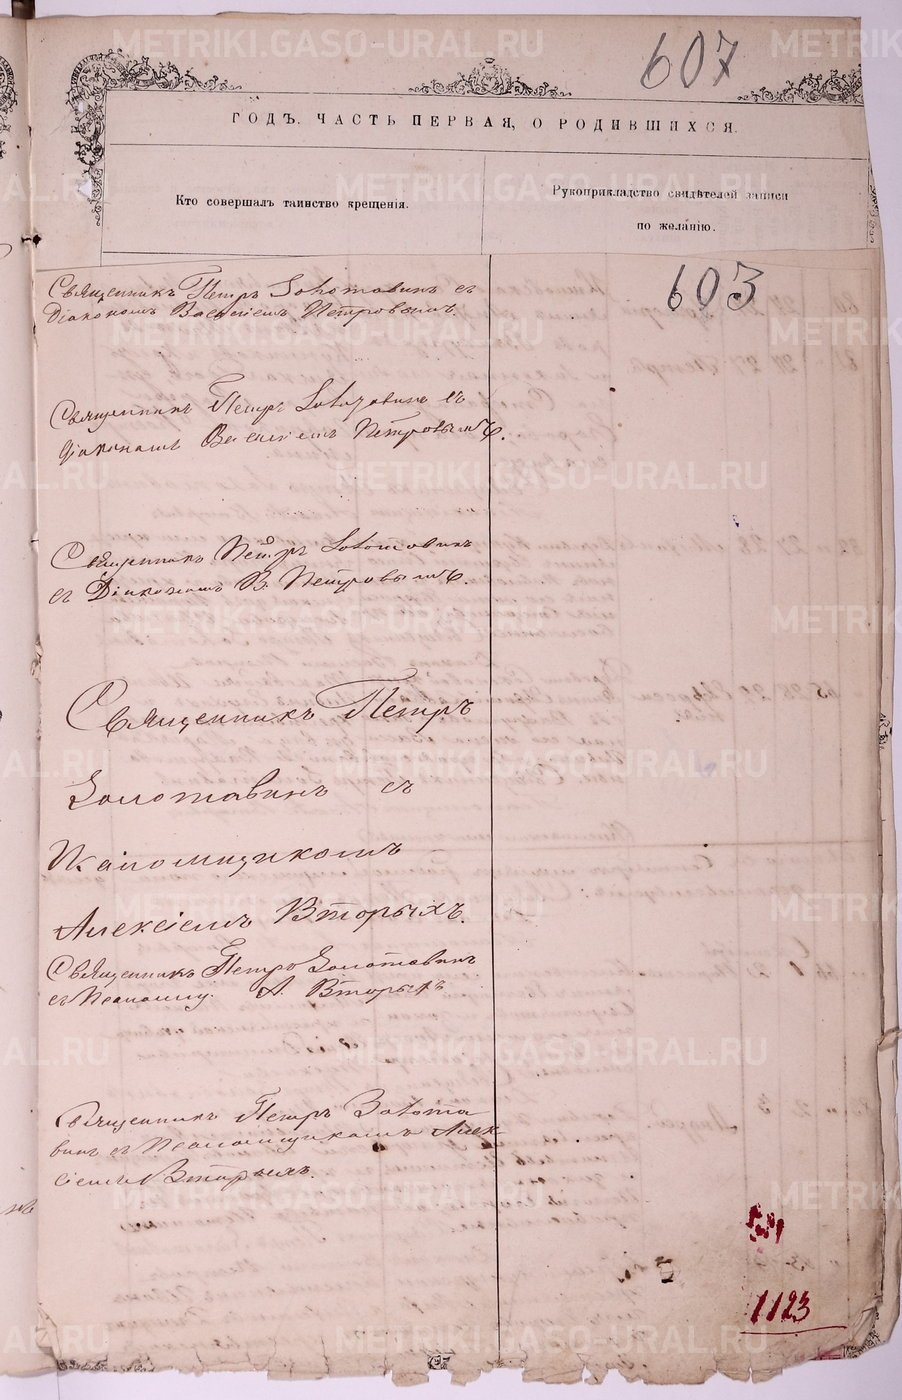 607
ГОДЪ. ЧАСТЬ ПЕРВАЯ, О РОДИВШИХСЯ.
Кто совершалъ таинство крещенія.
Рукоприкладство свидѣтелей записи
по желанію.
603
Священникъ Петръ Золотавинъ съ
Діакономъ Василіемъ Петровымъ.
Священникъ Петръ Золотавинъ съ
Діакономъ Василіемъ Петровымъ.
Священникъ Петръ Золотавинъ
съ Діакономъ В. Петровымъ.
Священникъ Петръ
Золотавинъ съ
Псаломщикомъ
Алексіемъ Вторыхъ.
Священникъ Петръ Золотавинъ
съ Псаломщ. А. Вторыхъ
Священникъ Петръ Золота
винъ съ Псаломщикомъ Алек
сіемъ Вторыхъ.
1123
METRIKI.GASO-URAL.RU